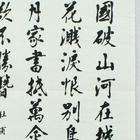 國破山河在
花濺淚恨別鳥
月家書抵萬金
欲不勝簪
杜甫